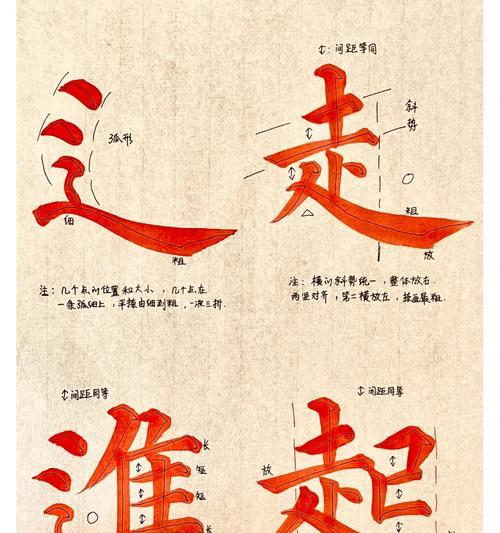 弧形
细
粗
注：几个点的位置和大小，几个点在
一条弧细上，平捺由细到粗，一波三折.
↕：间距等同
走
斜
势
粗
放
注：横的斜势统一，整体放右.
两竖对齐，第二横放左，捺画最粗.
↕间距同等
進
长
短
短
长
↕间距同等
起
放